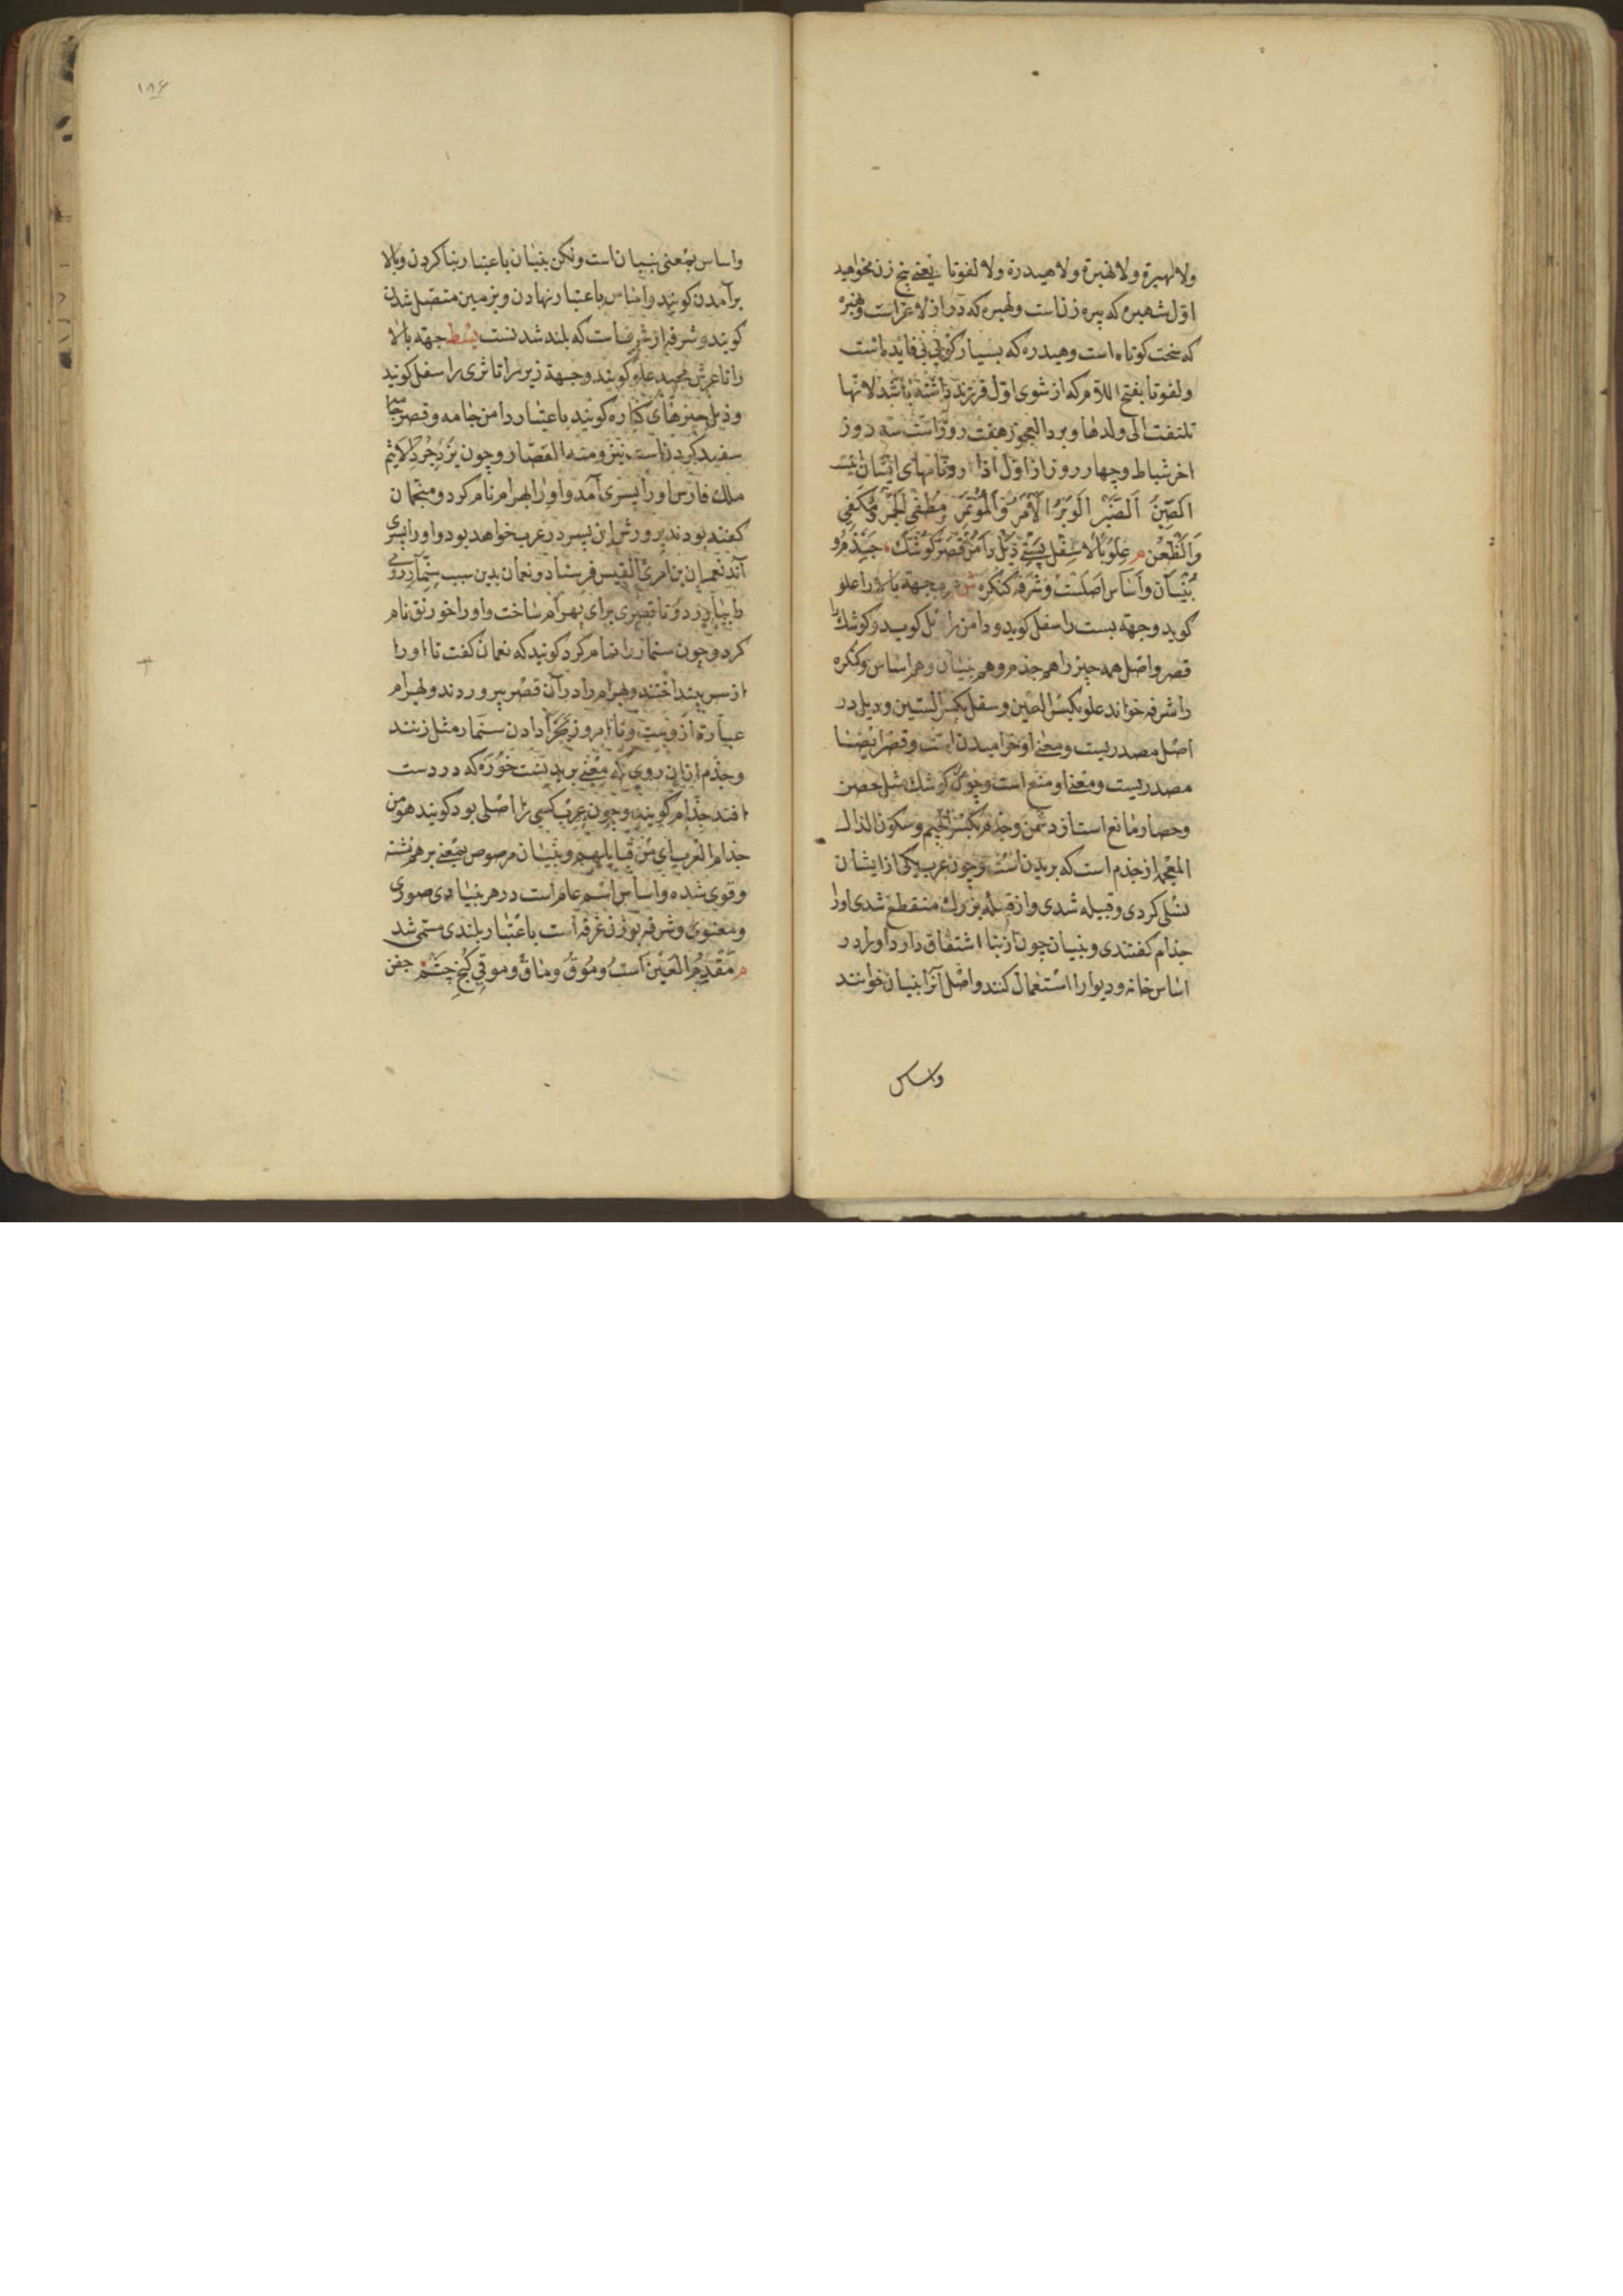 ولا لهبرة ولا نهبرة ولا هیدرة ولا لفوتا یعنی پنج زن مخواهید
اول شهبره که پیره زنست ولهبره که دراز لاغراست ونهبره
که سخت کوتاه است وهیدره که بسیار کوی بی فایده باشد
ولفوتا بفتح اللام که از شوی اول فرزند داشته باشد لانها
تلتفت الی ولدها وبرد العجوز هفت روزاست سه روز
اخر شباط وچهار روز از اول اذار ونامهای ایشان اینست
الصن الصنبر الوبر الآمر والموتمر ومطفی الجمر ومکفی
والظعن م علو بالا سفل پستی ذیل دامن قصر کوشک جذم و
بنیان واساس اصلست وشرفه کنکره ش عرب جهة بالا را علو
کوید وجهة پست را سفل کوید ودامن را ذیل کوید وکوشک را
قصر واصل همه چیز را هم جذم وهم بنیان وهم اساس وکنکره
را شرفه خواند علو بکسر العین وسفل بکسر السین وذیل در
اصل مصدریست ومعنی او خرامیدن است وقصر ایضا
مصدریست ومعنا او منع است وچون کوشک مثل حصن
وحصار مانع است از دشمن وجذم بکسر الجیم وسکون الذال
المعجمه از جذم است که بریدن است وچون عرب یکی از ایشان
نسلی کردی وقبیله شدی واز قبیله بزرک منقطع شدی اورا
جذام کفتندی وبنیان چون از بنا اشتقاق دارد اورا در
اساس خانه ودیوار استعمال کنند واصل آنرا بنیان خوانند
واساس
۱۸۶
واساس بمعنی بنیان است ولکن بنیان باعتبار بنا کردن وبالا
برآمدن کویند واساس باعتبار نهادن وبزمین متصل شدن
کویند وشرفه از شرف است که بلند شدنست بسط جهة بالا
را تا عرش مجید علو کویند وجهة زیر را تا ثری را سفل کویند
وذیل چیزهای کناره کویند باعتبار دامن جامه وقصر جامه
سفید کردن است نیز ومنه القصار وچون یزدجرد الاثیم
ملک فارس اورا پسری آمد واو را بهرام نام کرد ومنجمان
کفته بودند پرورش این پسر در عرب خواهد بود واورا پسری
آمد نعمان بن امرئ القیس فرستاد ونعمان بدین سبب سنمار رومی
را بیاورد وتا قصری برای بهرام ساخت واورا خورنق نام
کرد وچون سنمار را تمام کرد کویند که نعمان کفت تا اورا
از سر بینداختند وبهرام را در آن قصر بپروردند وبهرام
عبارة ازویست وتا امروز جزا دادن سنمار مثل زنند
وجذم ازان روی که معنی بریدنست خوره که در دست
افتد جذام کویند وچون عرب کسی را اصلی بود کویند هو من
جذام العرب ای من قبایلهم وبنیان مرصوص بمعنی برهم نشسته
وقوی شده واساس اسم عام است در هر بنیادی صوری
ومعنوی وشرفه بوزن غرفه است باعتبار بلندی مسمی شد
م مقدم العین است وموق وماق وموقی کنج چشم جفن